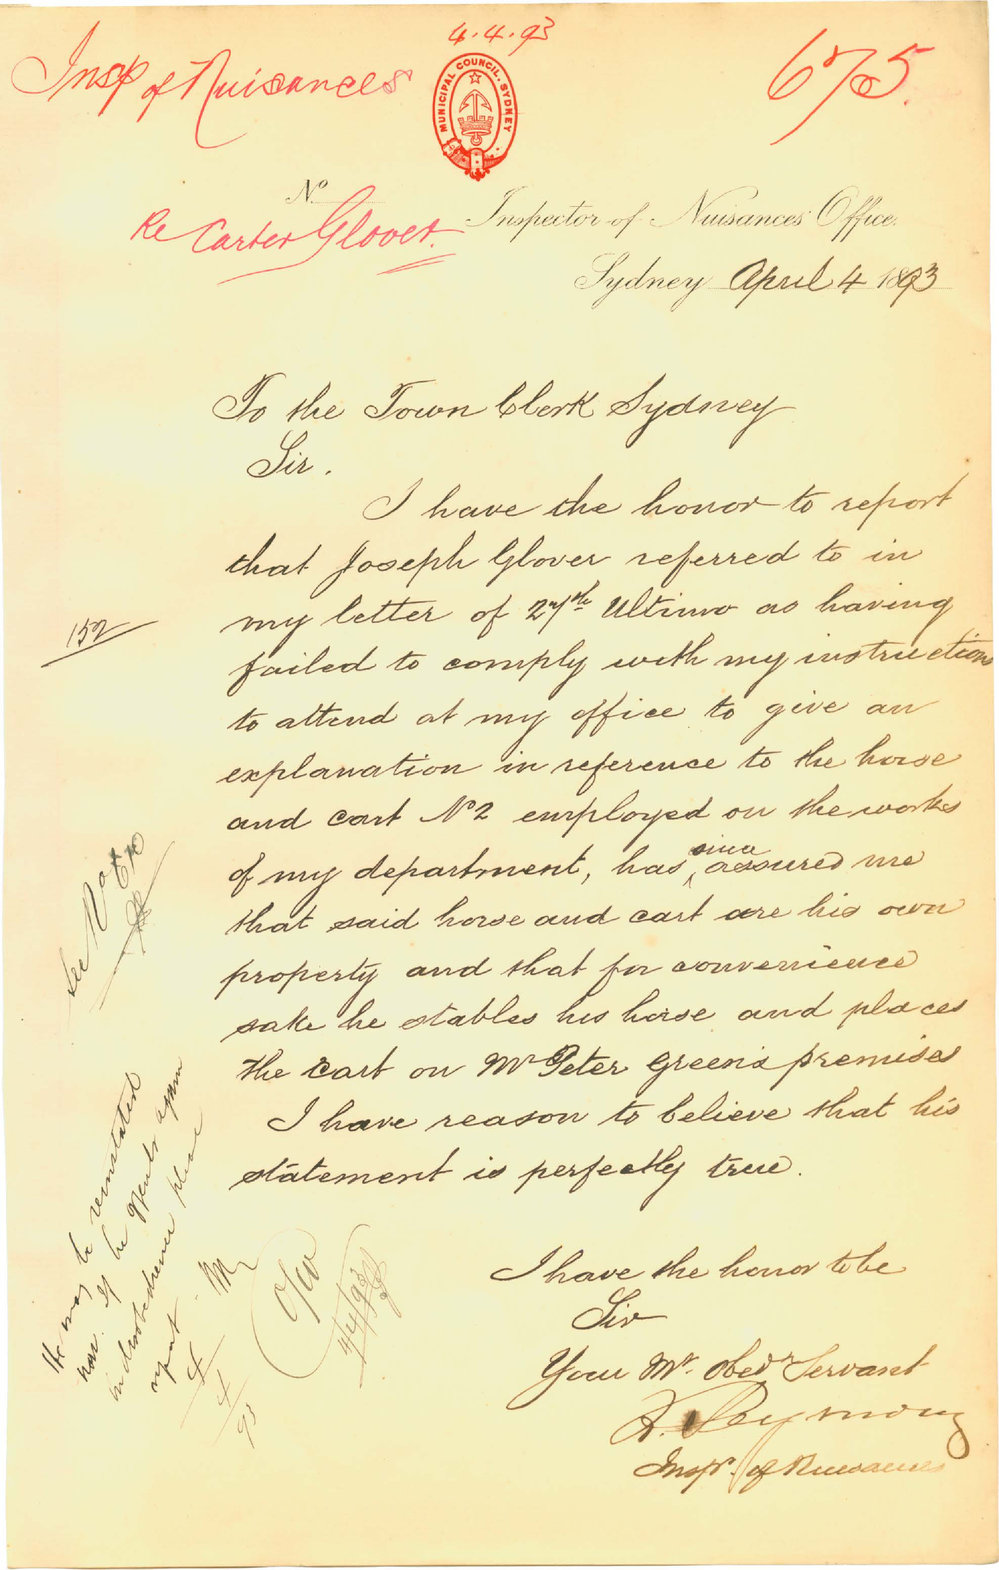 4.4.93
Insp of Nuisances
675.
MUNICIPAL COUNCIL. SYDNEY
No
Re Carter Glover.
Inspector of Nuisances Office.
Sydney April 4 1893
To the Town Clerk Sydney
Sir.
I have the honor to report
that Joseph Glover referred to in
my letter of 27th Ultimo as having
failed to comply with my instructions
152
to attend at my office to give an
explanation in reference to the horse
and cart No 2 employed on the works
of my department, has since assured me
that said horse and cart are his own
property and that for convenience
sake he stables his horse and places
the Cart on Mr Peter Green's premises
I have reason to believe that his
statement is perfectly true.
See
He may be reinstated
now. If he offends again
please
report
4/4/93
4/4/93
I have the honor to be
Sir
Your Mt. Obedt Servant
R. Seymour
Inspr. of Nuisances